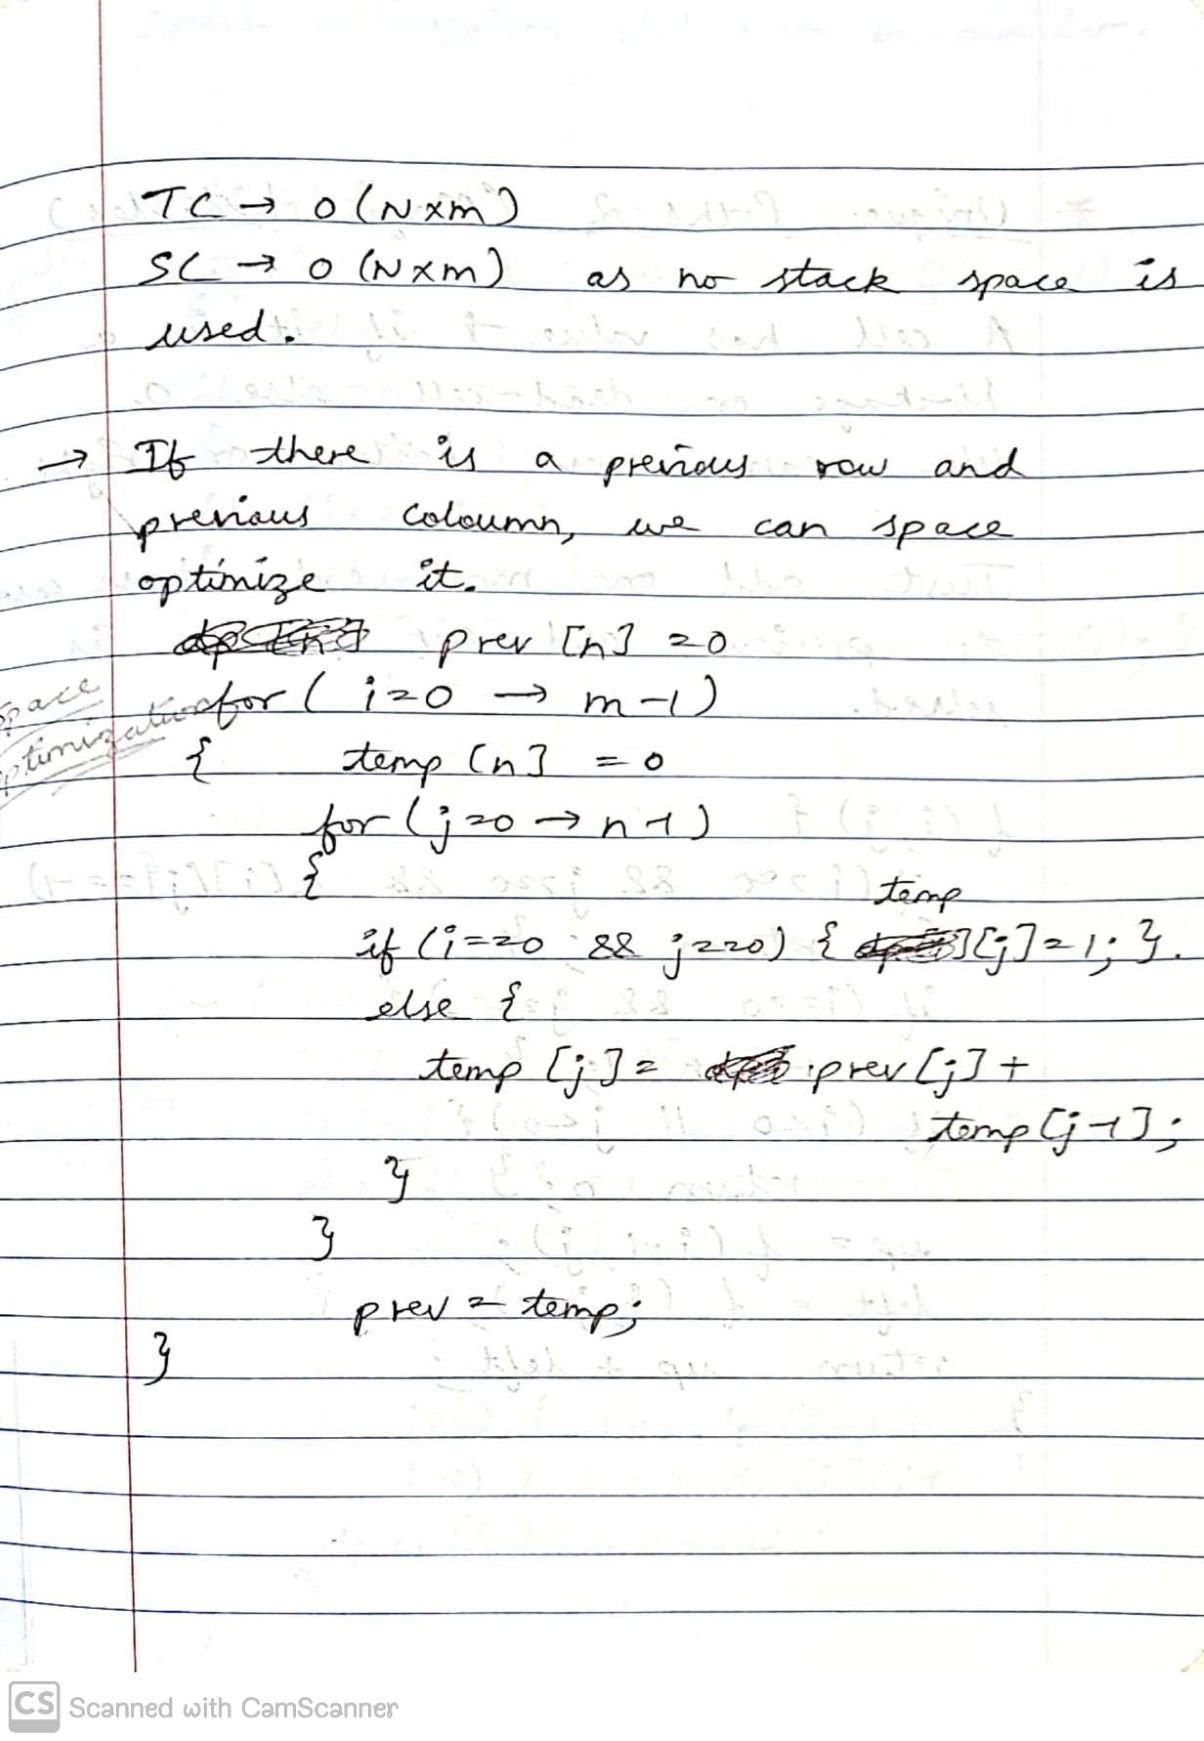 TC → O(N×m)
SC → O(N×m) as no stack space is
used.
→ If there is a previous row and
previous coloumn, we can space
optimize it.
prev [n] = 0
space
optimization
for ( i=0 → m-1)
{ temp [n] = 0
for (j=0 → n-1)
{
temp
if (i==0 && j==0) { [j]=1; }.
else {
temp [j] = prev[j] +
temp[j-1];
}
}
prev = temp;
}
CS Scanned with CamScanner